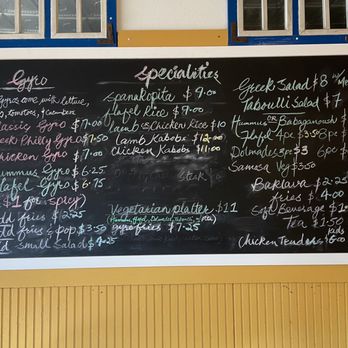 Gyro
Gyros come with lettuce,
tomatoes, & cucumbers
Classic Gyro $7.00
Greek Philly Gyro $7.50
Chicken Gyro $7.00
Hummus Gyro $6.25
Falafel Gyro $6.75
$1 for spicy)
fries $2.25
fries & pop $3.50
small salad $4.25
Specialities
Spanakopita $9.00
Flafel Rice $9.00
Lamb or Chicken Rice $10
Lamb Kabobs $12.00
Chicken Kabobs $11.00
Vegetarian platter $11
gyro fries $7.25
Greek Salad $8
Taboulli Salad $7
Hummus OR Babaganoush
Flafel 4pc 3.50 8pc
Dolmades 3pc $3 6pc
Samosa Veg $3.50
Baklava $2.25
fries $4.00
Soft Beverage $1
Tea $1.50
Kids
Chicken Tenders $6.00